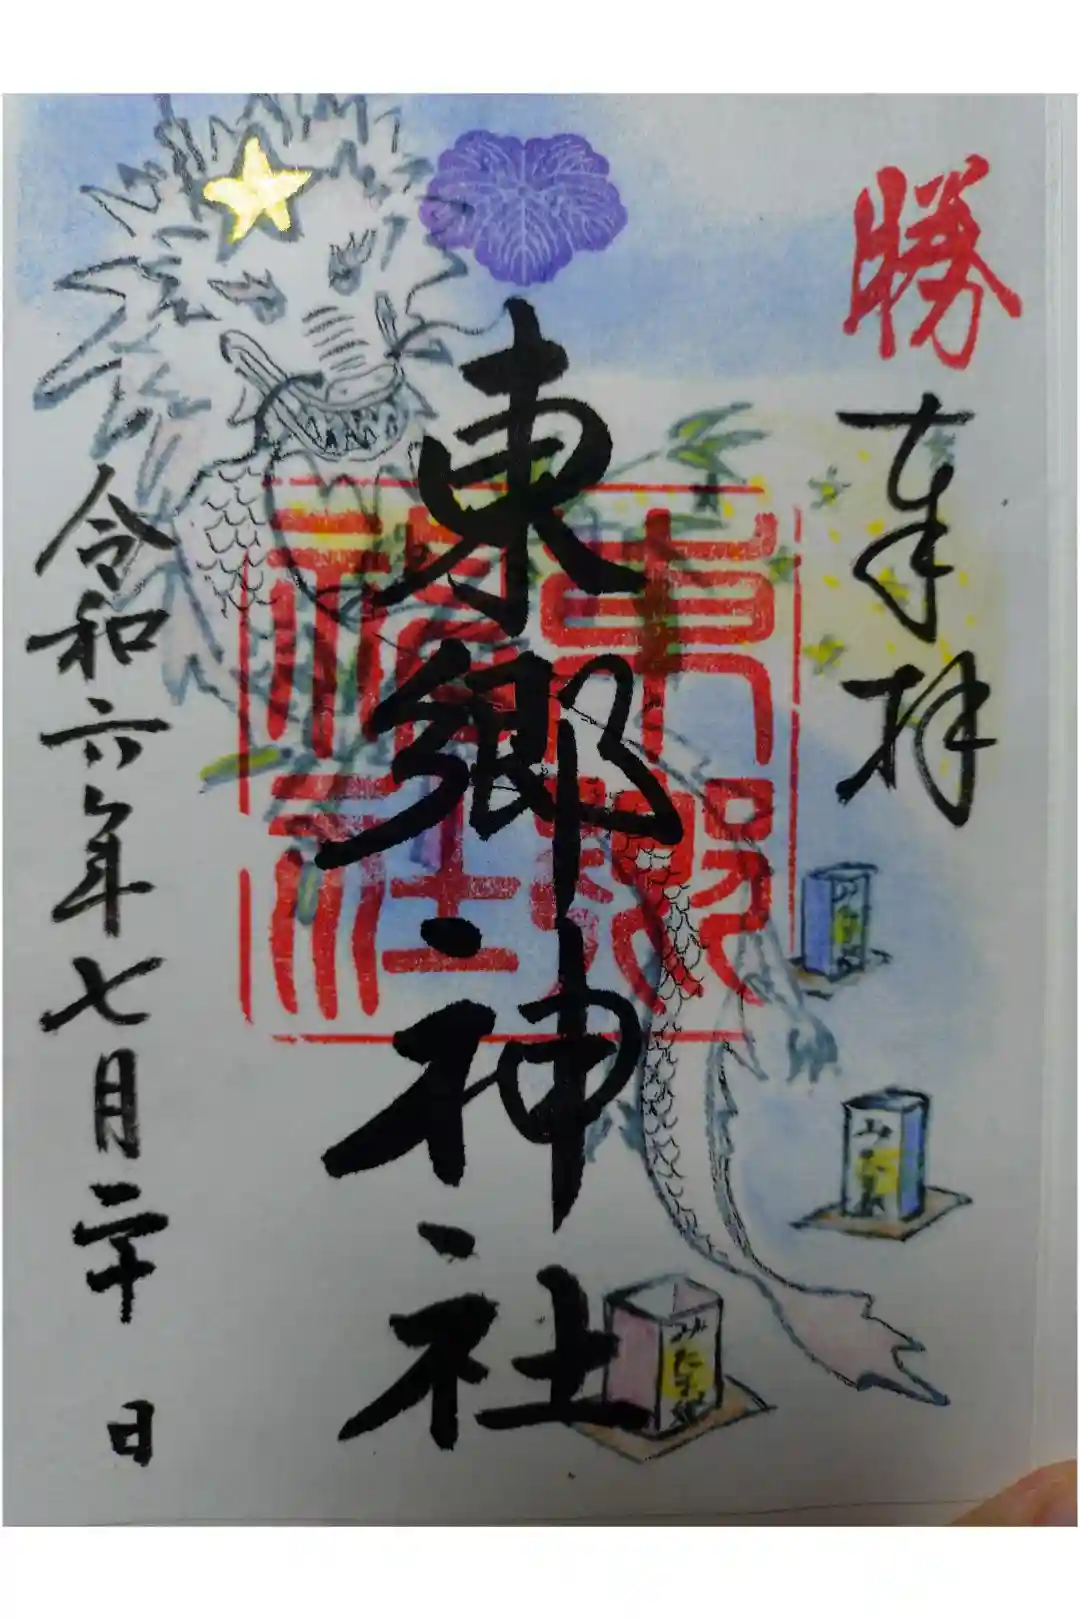 勝
奉拝
東郷神社
東郷
神社
令和六年七月二十日
みたま祭
みたま祭